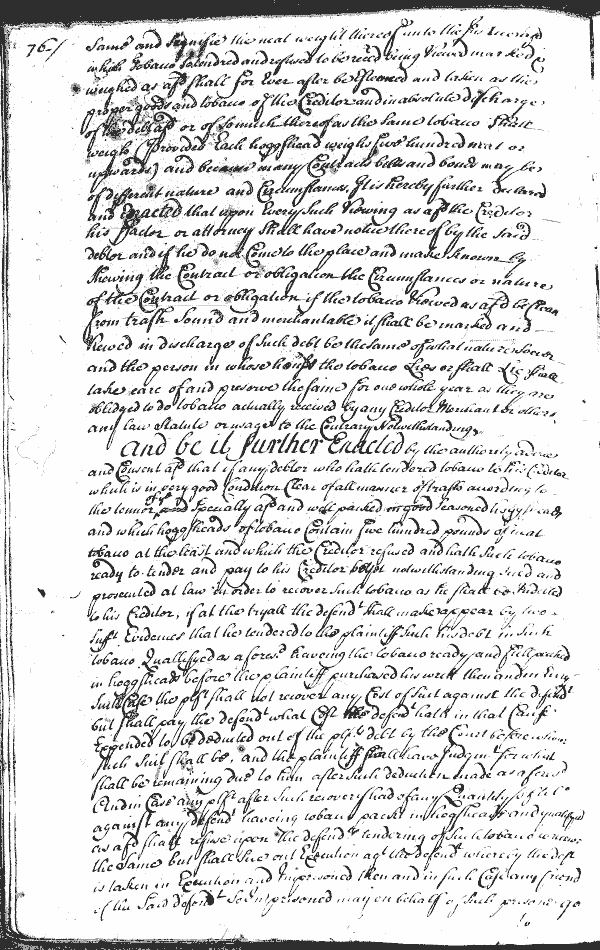 76/
Same and Signifie the neat weight thereof unto the sd Creditor
which tobacco so tendred and refused to be rec'd being Viewed marked &
weighed as afsd shall for Ever after be Esteemed and taken as the
proper goods and tobacco of the Creditor and in absolute discharge
of the debt afsd or of so much thereof as the same tobacco shall
weigh (Provided Each hogshead weighs five hundred neat or
upwards) and because many Contracts bills and bonds may be
of different nature and Circumstances, It is hereby further declared
and Enacted that upon Every such Viewing as afsd the Creditor
his Factor or attorney shall have notice thereof by the said
debtor and if he do not Come to the place and make known by
shewing the Contract or obligation the Circumstances or nature
of the Contract or obligation if the tobacco Viewed as afsd be Clean
from trash Sound and merchantable it shall be marked and
Viewed in discharge of such debt be the same of what nature soever
and the person in whose house the tobacco Lies or shall Lie shall
take care of and preserve the same for one whole year as they are
obliged to do tobacco actually received by any Creditor Merchant or others
any law Statute or usage to the Contrary Notwithstanding,
And be it further Enacted by the authority advice
and Consent afsd that if any debtor who hath tendered tobacco to his Creditor
which is in very good Condition Clear of all manner of trash according to
the tennor Specially afsd and well packed in good Seasoned hogsheads
and which hogsheads of tobacco Contain five hundred pounds of neat
tobacco at the least and which the Creditor refused and hath such tobacco
ready to tender and pay to his Creditor notwithstanding Sued and
prosecuted at law in order to recover such tobacco as he shall be Indebted
to his Creditor, if at the tryall the defendt shall make appear by two
Suft Evidences that he tendered to the plaintiff such his debt in such
tobacco Quallefyed as aforesd haveing the tobacco ready and full packed
in hogsheads before the plaintiff purchased his writt then and in Every
Such Case the pltf shall not recover any Cost of suit against the defendt
but shall pay the defendt what Cost the defendt hath in that Cause
Expended to be deducted out of the pltfs debt by the Court before whom
such suit shall be, and the plaintiff shall have Judgmt for what
shall be remaining due to him after such deduction made as aforesd
And in Case any pltf after such recovery had of any Quantity of tobco
against any defendt haveing tobacco packt in hogsheads and qualifyed
as afsd shall refuse upon the defendts tendering of such tobacco to receive
the same but shall Sue out Execution agt the defendt whereby the deft
is taken in Execution and Imprisoned then and in such Case any friend
of the Said defendt so Imprisoned may on behalf of such person go
to